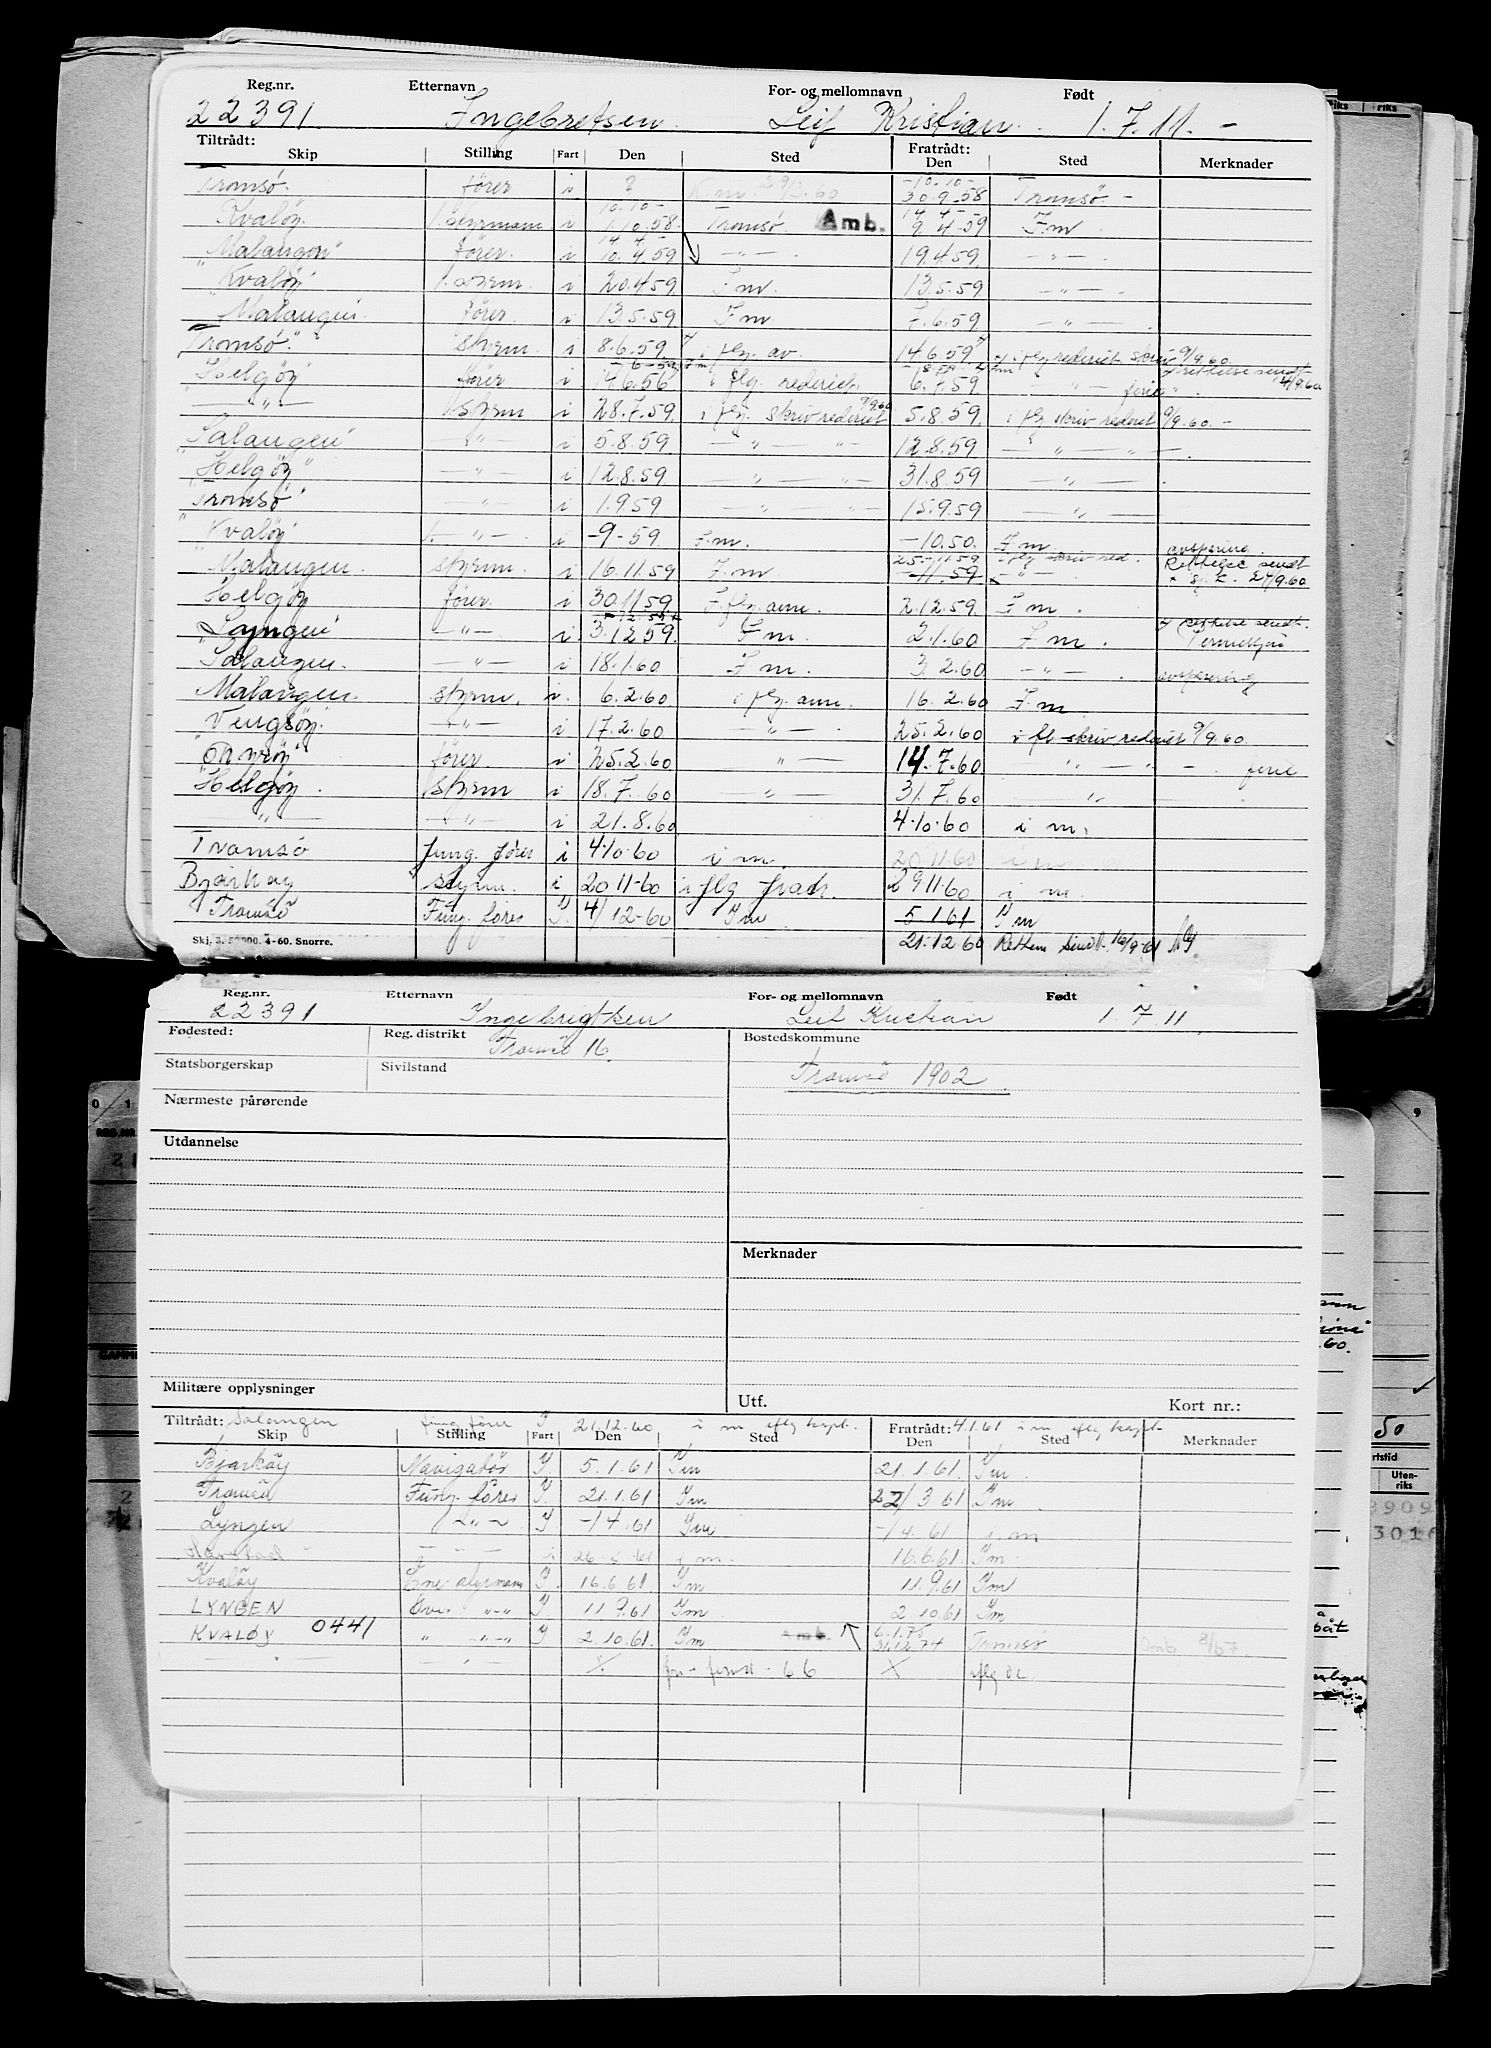 Reg.nr. Etternavn For- og mellomnavn Født
22391 Ingebretsen Leif Kristian 1.7.11.-
Tiltrådt: Fratrådt:
Skip Stilling Fart Den Sted Den Sted Merknader
Tromsø. fører i ? -10.10- 30.9.58 Tromsø -
Kvaløy. i 10.10- 1.10.58. Tromsø. Amb. 14 4- 9 4-59 F.m
"Malangen" fører. i 14 4- 10.4.59 — " — . 19.4.59. — " — .
"Kvaløy" i 20.4.59 F.m. 13.5.59 — " — .
Malangen. fører. i 13.5.59 F.m. 7.6.59 — " — .
Tromsø." styrm. i 8.6.59. i flg. av. 14.6.59 i flg rederiet skriv 9/9.60.
"Helgøy fører i 14.6.56 i flg. rederiet. 6.7.59 — " — ferie rettelse sendt 9/9.60.
— " — styrm i 28.7.59. i flg. skriv rederiet 9/9.60 5.8.59. i flg skriv rederiet 9/9.60. -
"Salangen" — " — i 5.8.59 — " — " — 12.8.59 — " — " — .
"Helgøy" — " — i 12.8.59 — " — " — 31.8.59 — " — .
"Tromsø" — " — i 1.9.59 — " — " — 15.9.59 — " —
"Kvaløy — " — . i -9-59 F.m. -10.50. F.m avspasering.
"Malangen. styrm. i 16.11.59 F.m 25.-11.59 -11.59 i flg skriv red. — " — Rettelse sendt 27/9.60
"Helgøy fører. i 30.11.59 F.flg.anm. 2.12.59 F.m.
"Lyngen" — " — . i 3.12.59. F.m. 2.1.60 F.m. rettelse sendt.
"Salangen. — " — i 18.1.60 F.m. 3.2.60 — " — . avspasering
Malangen. styrm. i. 6.2.60 i flg. anm. 16.2.60 F.m.
"Vengsøy." — " — i 17.2.60 — " — . 25.2.60 i fl. skriv rederiet 9/9.60.
fører i 25.2.60 " — 14.7.60 " — " — . ferie
"Helgøy. styrm i 18.7.60 — " — 31.7.60 " .
— " — — " — i 21.8.60 4.10.60 i m.
Tromsø fung. fører i 4.10.60 i m. 20.11.60 i m
Bjarkøy styrm. i 20.11-60 i flg fratr. 29.11.60 i m.
"Tromsø Fung. fører I. 4/12-60 Im 5.1.61 Im
Skj. 3. 50000. 4-60. Snorre. 21.12.60 Retten sendt 16/9-61
Reg.nr. Etternavn For- og mellomnavn Født
22391 Ingebrigtsen Leif Kristian 1.7.11.
Fødested: Reg. distrikt Tromsø 16. Bostedskommune
Statsborgerskap Sivilstand Tromsø 1902.
Nærmeste pårørende
Utdannelse
Merknader
Militære opplysninger Utf. Kort nr.:
Tiltrådt: Salangen fung. fører I 21.12.60 i m iflg kapt. Fratrådt: 4.1.61 i m iflg kapt.
Skip Stilling Fart Den Sted Den Sted Merknader
Bjarkøy Navigatør I 5.1.61 Im 21.1.61. Im
Tromsø Fung. fører I. 21.1.61 Im 22/3 61 Im
Lyngen — " — I -14.61 Im -14.61 i m
Harstad — " — i 26.5.61 i m. 16.6.61. Im
Kvaløy Ene-styrmann I. 16.6.61. Im 11.9.61 Im
LYNGEN Over — " — I. 11.9.61 Im 2.10.61 Im
KVALØY 0441 " — " — I 2.10.61. Im Amb. 6.1.75 31.12.74 Tromsø Amb 8/67.
" — " — X 66 X iflg do.